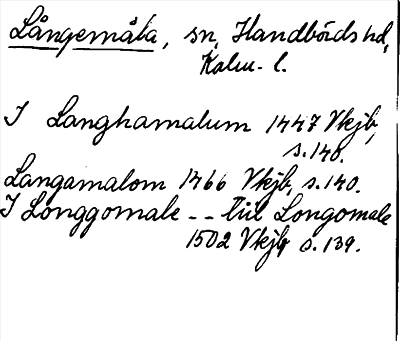 Långemåla, sn, Handbörds hd,
Kalm. l.
I Langhamalum 1447 Vkjb,
s. 140.
Langamalom 1466 Vkjb, s. 140.
I Longgomale -- Till Longomale
1502 Vkjb s. 139.